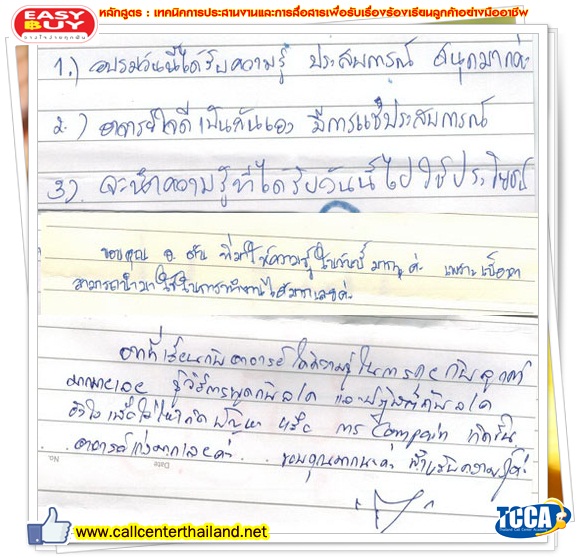 EASY BUY
บางใจง่ายทุกคืน
หลักสูตร : เทคนิคการประสานงานและการสื่อสารเพื่อรับเรื่องร้องเรียนลูกค้าอย่างมืออาชีพ
1.) อบรมวันนี้ได้รับความรู้ ประสบการณ์ สนุกมากค่ะ
2.) อาจารย์ใจดีเป็นกันเอง มีการแชร์ประสบการณ์
3). จะนำความรู้ที่ได้รับวันนี้ไปใช้ประโยชน์
ขอบคุณ อ. ที่มาให้ความรู้ในวันนี้มากๆ ค่ะ เพราะเนื้อหา
สามารถนำมาใช้ในการทำงานได้มากเลยค่ะ
เรียนกับอาจารย์ ได้ความรู้ในการคุยกับลูกค้า
มากมายเลย รู้วิธีการพูดกับ และปฏิบัติกับ
ยังไง เพื่อไม่ให้เกิดปัญหา หรือ การ Compain เกิดขึ้น
อาจารย์เก่งมากเลยค่ะ ขอบคุณมากนะคะ สำหรับความรู้ค่ะ
No.
Date
www.callcenterthailand.net
TCCA
Thailand Call Center Academy